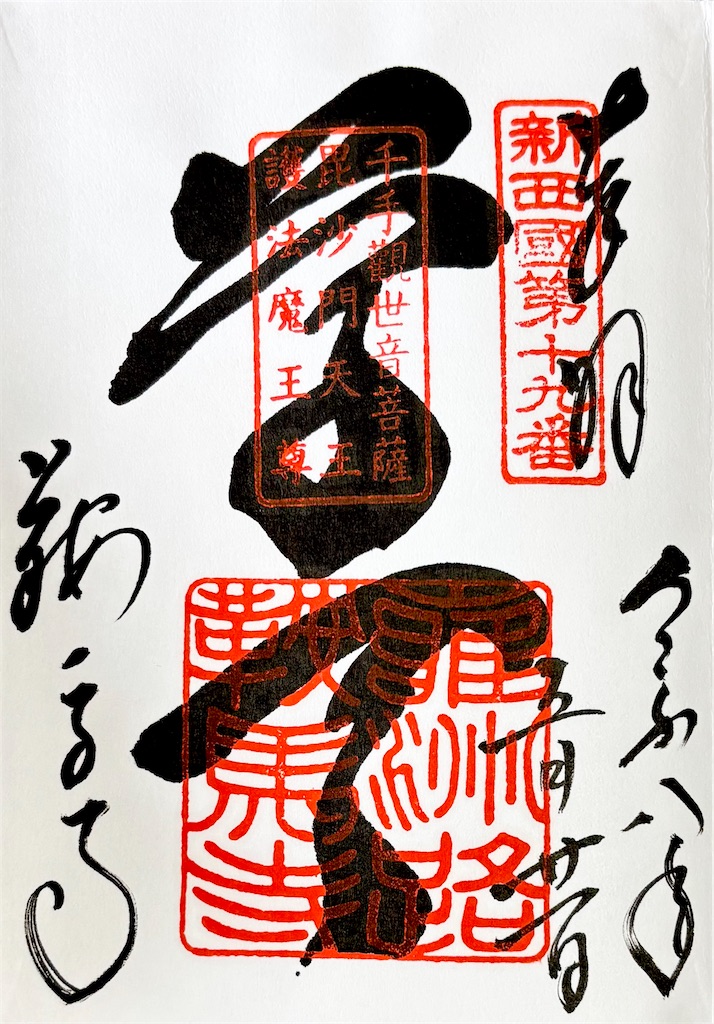 新西國第十九番
奉拝
令和八年
五月廿一日
千手觀世音菩薩
毘沙門天王
護法魔王尊
尊天
雍州路
鞍馬寺
鞍馬寺